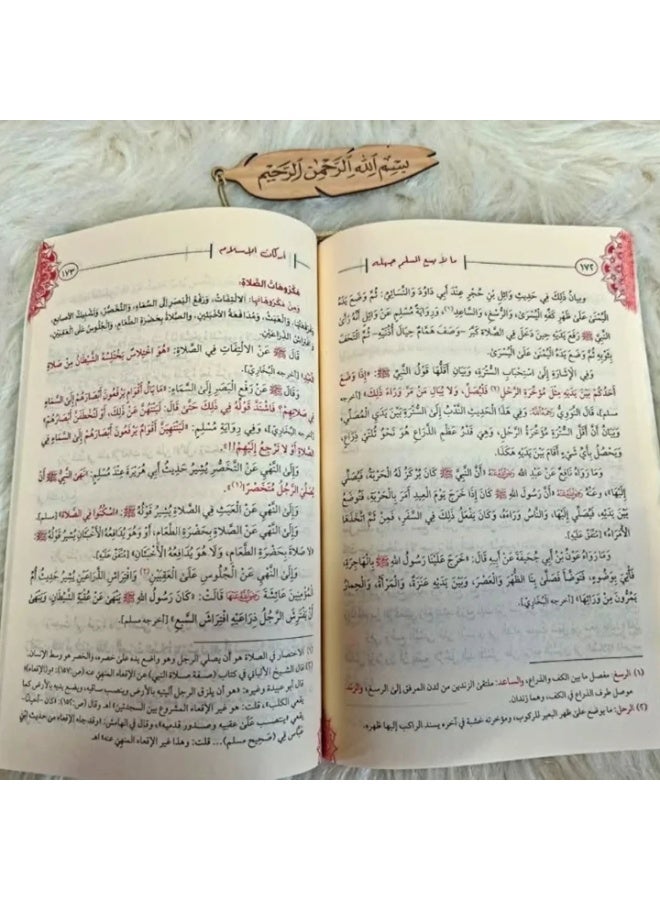 بسم الله الرحمن الرحيم
ما لا يسع المسلم جهله
١٧٢
وبيان ذلك في حديث وائل بن حجر عند أبي داود والنسائي: ثم وضع يده
اليمنى على ظهر كفه اليسرى، والرسغ، والساعد(١)، ورواية مسلم عن وائل أنه رأى
النبي ﷺ رفع يديه حين دخل في الصلاة كبر -وصف همام حيال أذنيه- ثم التحف
بثوبه ثم وضع يده اليمنى على اليسرى.
وفي الإشارة إلى استحباب السترة، وبيان أقلها قول النبي ﷺ: «إذا وضع
أحدكم بين يديه مثل مؤخرة الرحل(٢) فليصل، ولا يبال من مر وراء ذلك» [أخرجه
مسلم]، قال النووي: وفي هذا الحديث الندب إلى السترة بين يدي المصلي،
وبيان أن أقل السترة مؤخرة الرحل، وهي قدر عظم الذراع هو نحو ثلثي ذراع،
ويحصل بأي شيء أقامه بين يديه هكذا.
وما رواه نافع عن عبد الله أن النبي ﷺ كان يركز له الحربة، فيصلي
إليها»، وعنه أن رسول الله ﷺ كان إذا خرج يوم العيد أمر بالحربة، فتوضع
بين يديه، فيصلي إليها، والناس وراءه، وكان يفعل ذلك في السفر، فمن ثم اتخذها
الأمراء» [متفق عليه].
وما رواه عون بن أبي جحيفة عن أبيه قال: «خرج علينا رسول الله ﷺ بالهاجرة،
فأتي بوضوء، فتوضأ فصلى بنا الظهر والعصر، وبين يديه عنزة، والمرأة، والحمار
يمرون من ورائها» [أخرجه البخاري].
(١) الرسغ: مفصل ما بين الكف والذراع، والساعد: ملتقى الزندين من لدن المرفق إلى الرسغ، والزند
موصل طرف الذراع في الكف، وهما زندان.
(٢) الرحل: ما يوضع على ظهر البعير للركوب، ومؤخرته خشبة في آخره يسند الراكب إليها ظهره.
أركان الإسلام
١٧٣
مكروهات الصلاة:
ومن مكروهاتها: الالتفات، ورفع البصر إلى السماء، والتخصر، وتشبيك الأصابع،
وفرقعتها، والعبث، ومدافعة الأخبثين، والصلاة بحضرة الطعام، والجلوس على العقبين،
وافتراش الذراعين.
قال ﷺ عن الالتفات في الصلاة: «هو اختلاس يختلسه الشيطان من صلاة
[أخرجه البخاري].
وقال ﷺ عن رفع البصر إلى السماء: «ما بال أقوام يرفعون أبصارهم إلى السماء
في صلاتهم» فاشتد قوله في ذلك حتى قال: «لينتهن عن ذلك، أو لتخطفن أبصارهم»
[أخرجه البخاري]، وفي رواية مسلم: «لينتهين أقوام يرفعون أبصارهم إلى السماء في
الصلاة أو لا ترجع إليهم»!!.
وإلى النهي عن التخصر يشير حديث أبي هريرة عند مسلم: «نهى النبي ﷺ أن
يصلي الرجل متخصرا»(١).
وإلى النهي عن العبث في الصلاة يشير قوله ﷺ: «اسكنوا في الصلاة» [مسلم].
وإلى النهي عن الصلاة بحضرة الطعام، أو وهو يدافعه الأخبثان يشير قوله ﷺ:
لا صلاة بحضرة الطعام، ولا هو يدافعه الأخبثان» [متفق عليه].
وإلى النهي عن الجلوس على العقبين(٢) وافتراش الذراعين يشير حديث أم
المؤمنين عائشة قالت: «كان رسول الله ﷺ ينهى عن عقبة الشيطان، وينهى
أن يفترش الرجل ذراعيه افتراش السبع» [أخرجه مسلم].
(١) الاختصار في الصلاة هو أن يصلي الرجل وهو واضع يده على خصره، والخصر هو وسط الإنسان.
(٢) قال الشيخ الألباني في كتاب (صفة صلاة النبي)
أبو عبيدة وغيره: «هو أن يلزق الرجل أليتيه بالأرض وينصب ساقيه، ويضع يديه بالأرض كما
يقعي الكلب»، قلت: هو غير الإقعاء المشروع بين السجدتين»
«ينتصب على عقبيه وصدور قدميه»، وقال في الهامش:
عباس في (صحيح مسلم)... قلت: وهذا غير الإقعاء المنهي عنه» اهـ